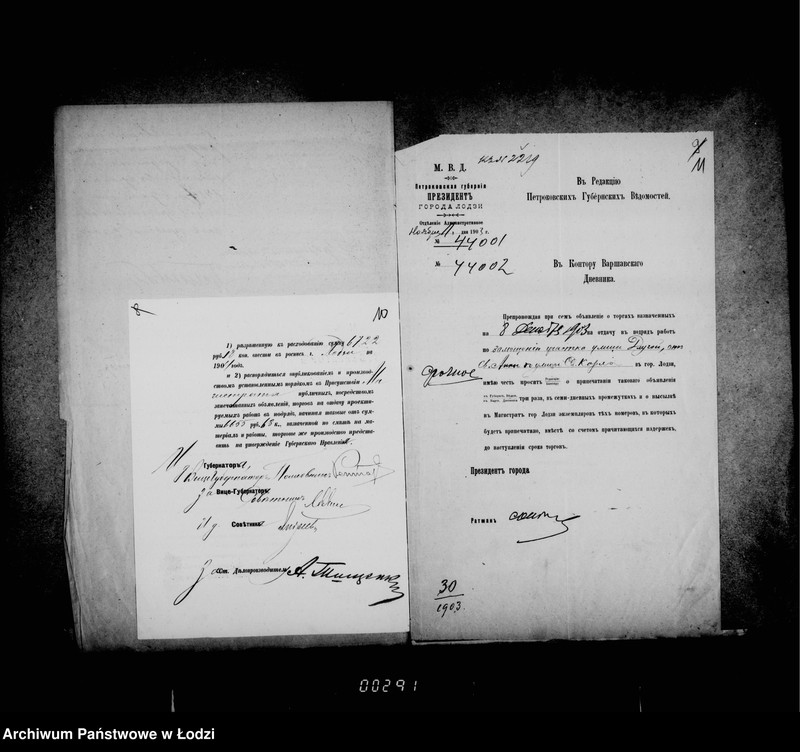 8
10
1) разрешенную к расходованію сумму 6722
руб. 18 коп. внести въ роспись г. Лодзи на
1904 годъ.
и 2) распорядиться опубликованіемъ и производ-
ствомъ установленнымъ порядкомъ въ Присутствіи
Магистрата публичныхъ, посредствомъ
запечатанныхъ объявленій, торговъ на отдачу проекти-
руемыхъ работъ въ подрядъ, начиная таковые отъ сум-
мы 6655 руб. 63 к., назначенной по смѣтѣ на ма-
теріалъ и работы, торговое же производство предста-
вить на утвержденіе Губернскаго Правленія.
Губернаторъ
Вице-Губернаторъ
За Вице-Губернатора
Совѣтникъ
И д Совѣтника
За Ст. Дѣлопроизводителя А. Тищенко
М. В. Д.
Петроковская губернія
ПРЕЗИДЕНТЪ
ГОРОДА ЛОДЗИ
Отдѣленіе Административное
Ноября 11 дня 1903 г.
№ 44001
№ 44002
къ № 2219
11
Въ Редакцію
Петроковскихъ Губернскихъ Вѣдомостей.
Въ Контору Варшавскаго
Дневника.
Срочное
Препровождая при семъ объявленіе о торгахъ назначенныхъ
на 8 Декабря 1903 на отдачу въ подрядъ работъ
по замощенію участка улицы Длугой, отъ
Св. Анны къ улицѣ Св. Кароля въ гор. Лодзи,
имѣю честь просить о припечатаніи таковаго объявленія
три раза, въ семи-дневныхъ промежуткахъ и о высылкѣ
въ Магистратъ гор. Лодзи экземпляровъ тѣхъ номеровъ, въ которыхъ
будетъ припечатано, вмѣстѣ со счетомъ причитающихся издержекъ,
до наступленія срока торговъ.
Президентъ города
Ратманъ
30
1903.
00291
Archiwum Państwowe w Łodzi